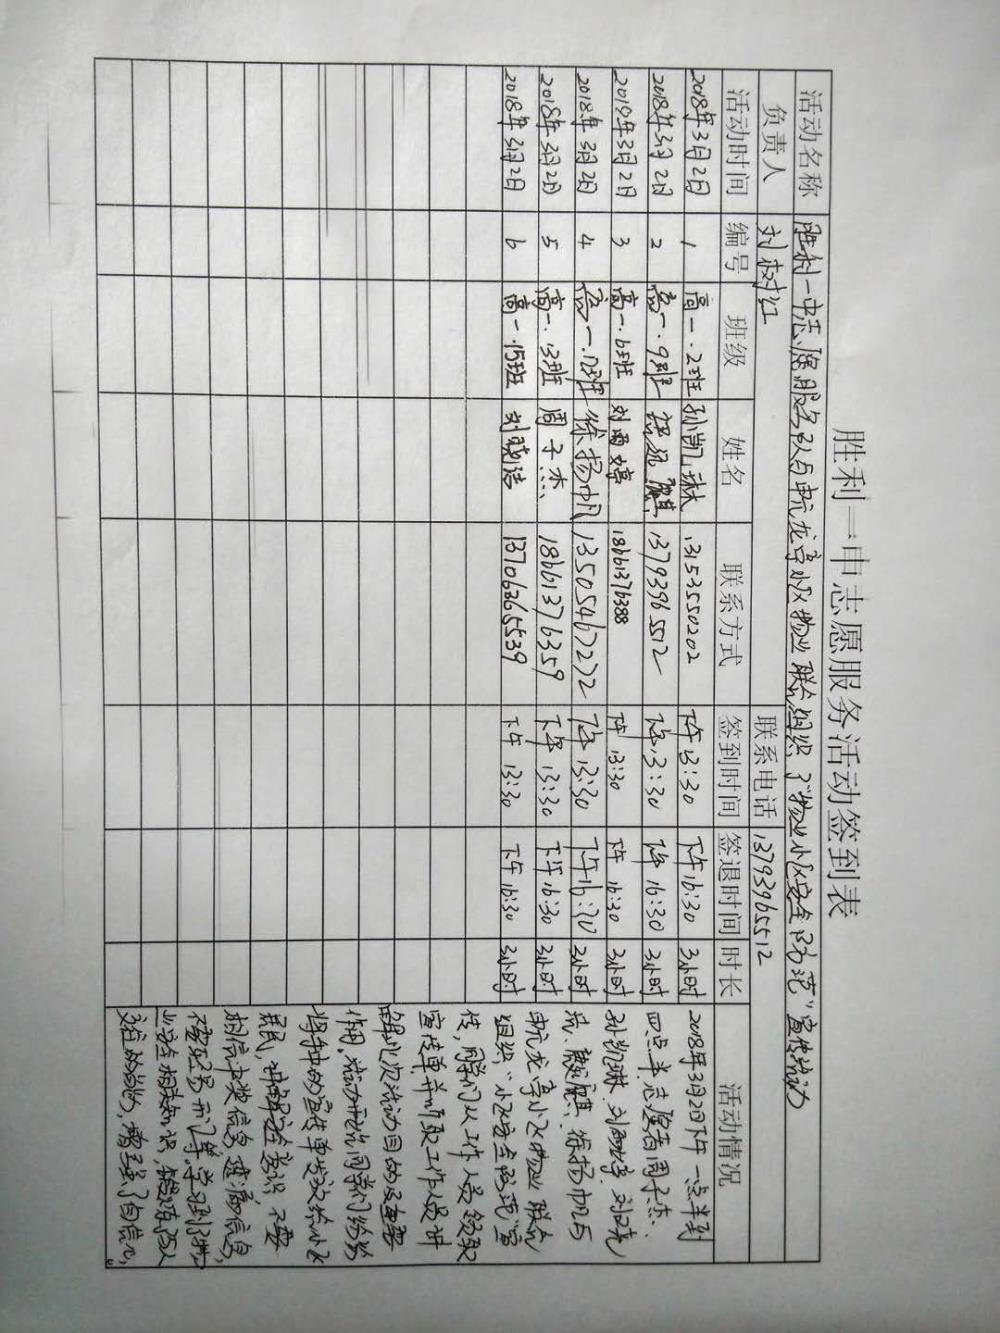 胜利一中志愿服务活动签到表
活动名称 胜利一中志愿服务队与中航龙亭小区物业联合组织了"物业小区安全防范"宣传活动
负责人 刘树红 联系电话 13793965512
活动时间 编号 班级 姓名 联系方式 签到时间 签退时间 时长 活动情况
2018年3月2日 1 高一.2班 孙凯琳 13153550202 下午13:30 下午16:30 3小时
2018年3月2日 2 高一.9班 13793965512 下午13:30 下午16:30 3小时
2018年3月2日 3 高一.6班 刘雨婷 18661376388 下午13:30 下午16:30 3小时
2018年3月2日 4 高一.17班 徐扬帆 13505467272 下午13:30 下午16:30 3小时
2018年3月2日 5 高一.13班 周子杰 18661376359 下午13:30 下午16:30 3小时
2018年3月2日 6 高一.15班 刘晓洁 13706365539 下午13:30 下午16:30 3小时
2018年3月2日下午一点半到
四点半.志愿者周子杰.
孙凯琳.刘雨婷.刘晓
洁.徐扬帆与
中航龙亭小区物业联合
组织"小区安全防范"宣
传,同学们从工作人员领取
宣传单并听取工作人员讲
解此次活动目的及重要
作用.活动开始同学们纷纷
将手中的宣传单发放给小区
居民,讲解安全意识.不要
相信中奖信息.
不要轻易开门等.学习到了物
业安全相关知识,锻炼了与人
交往的能力,增强了自信心.